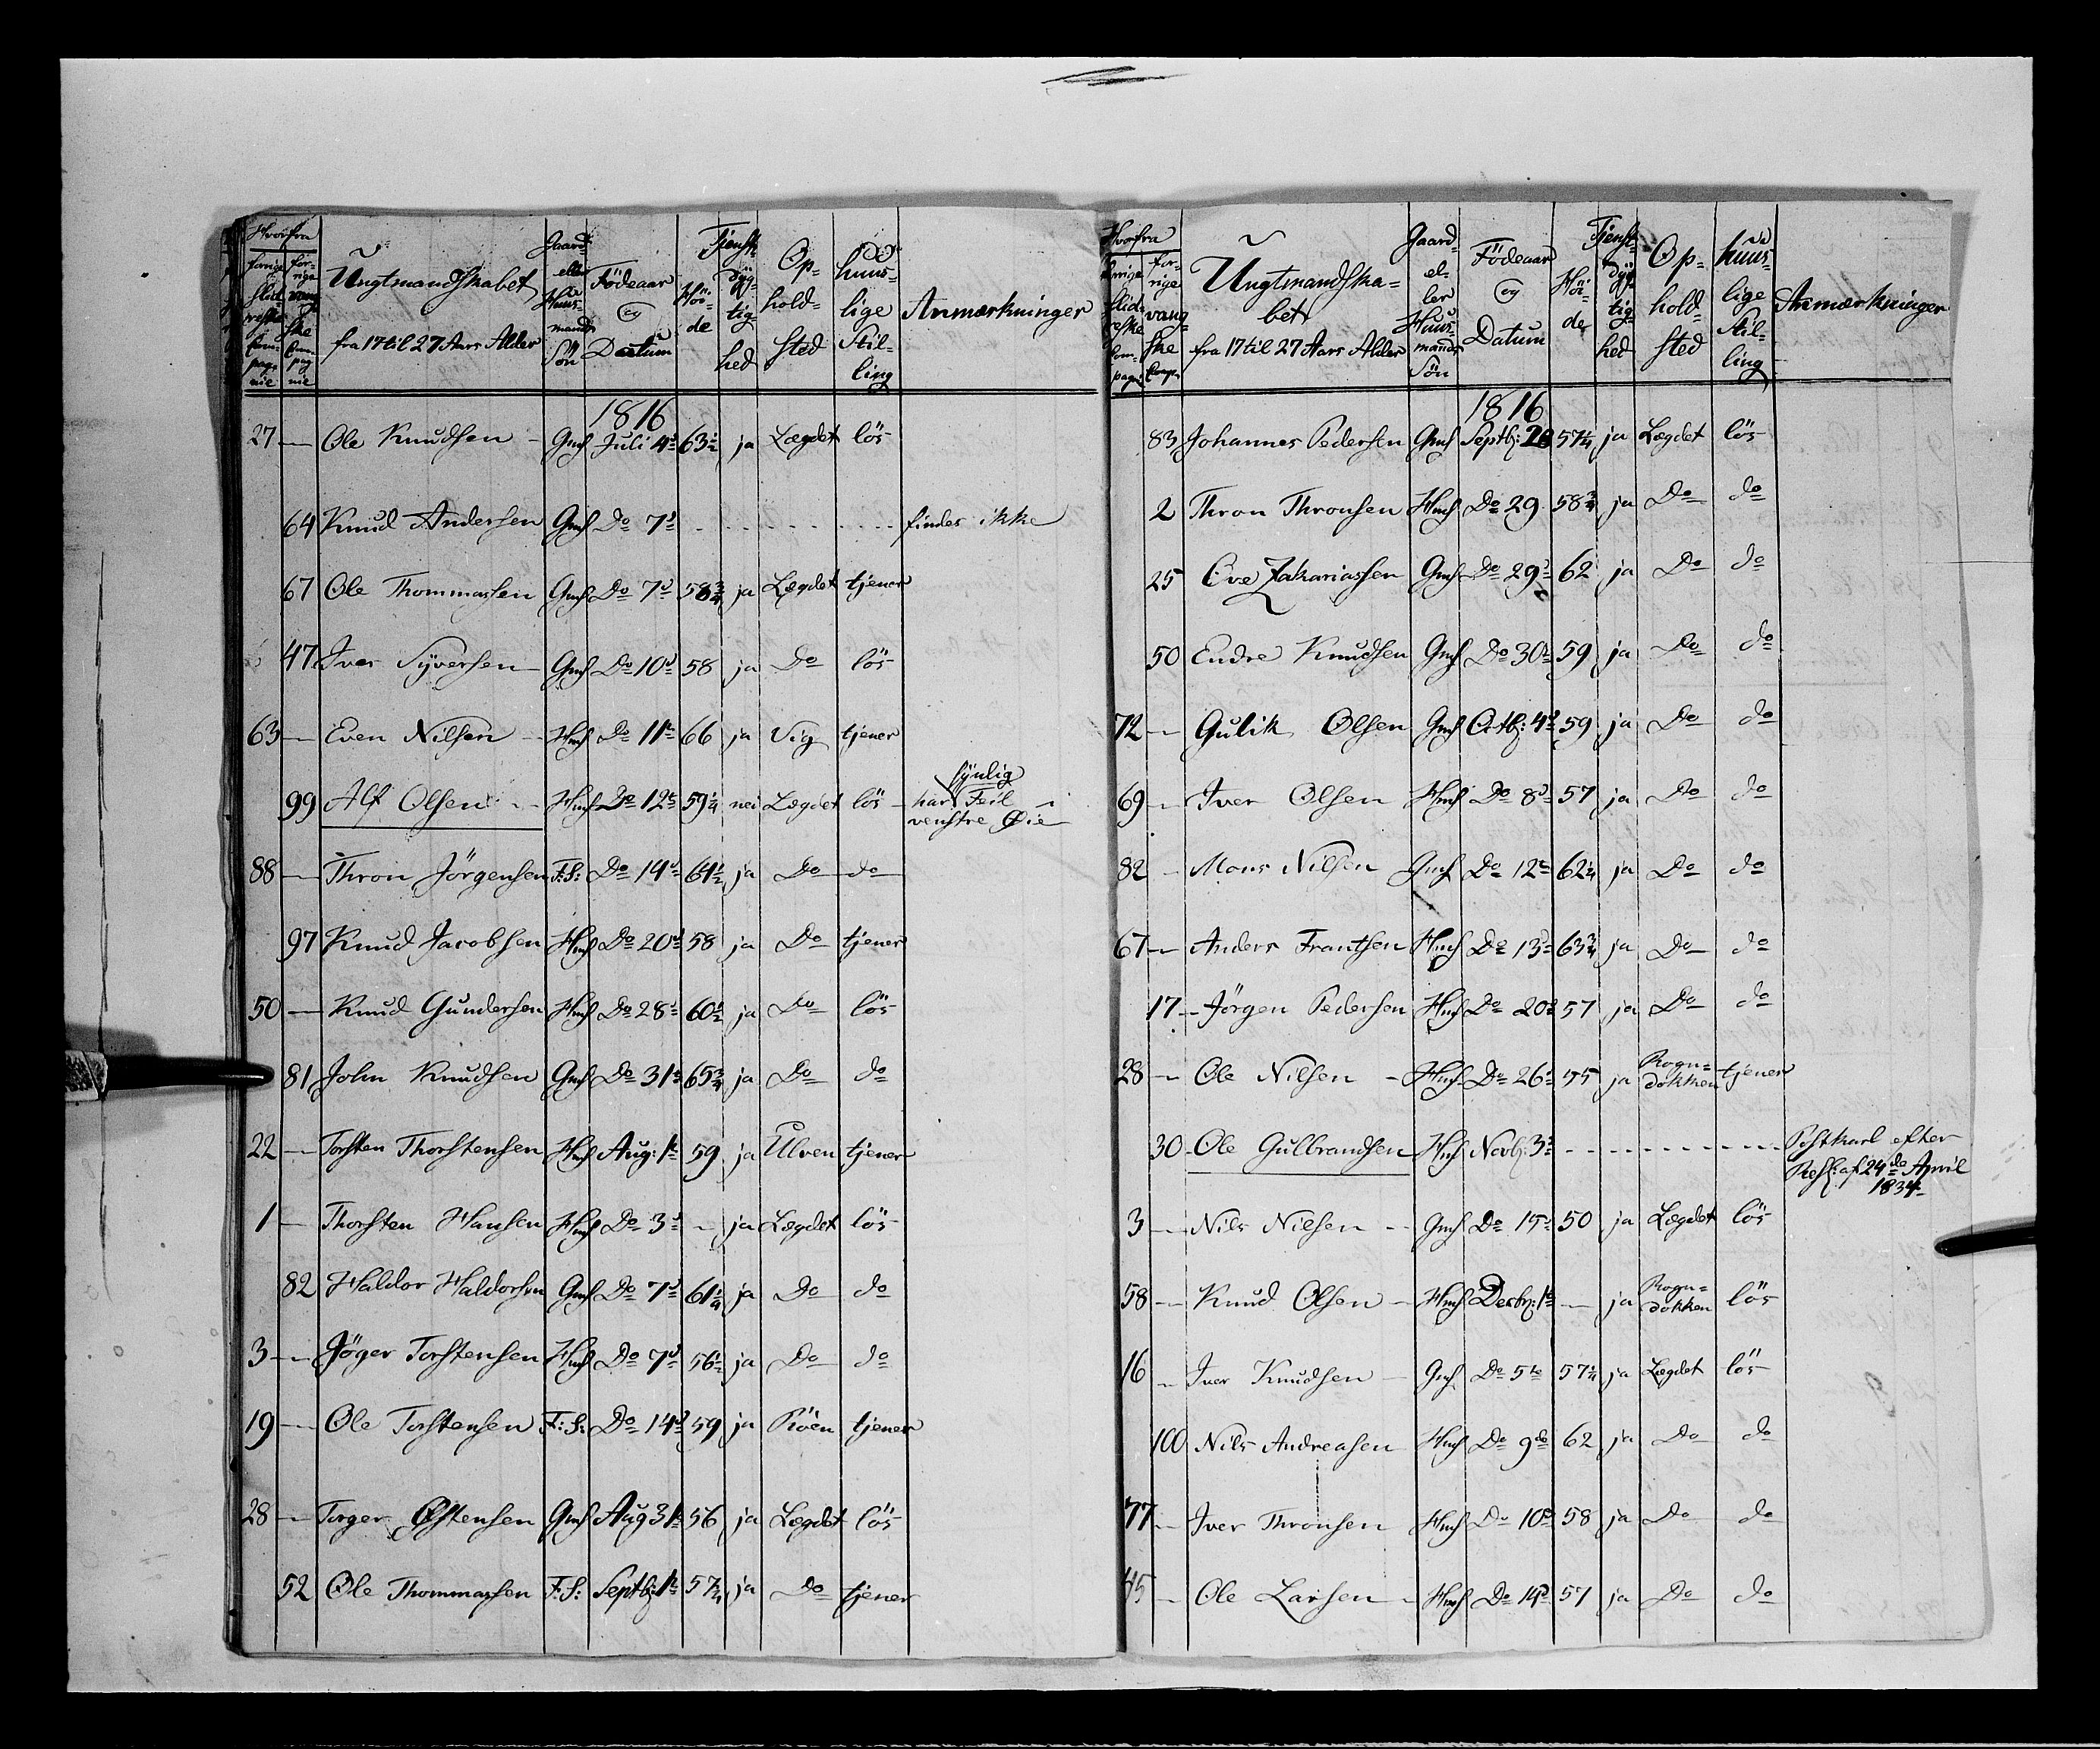 Hvorfra
forrige Slidreske Compagnie
forrige vangske Compagnie
Ungtmandskabet
fra 17 til 27 Aars Alder
Gaard eller Huusmands Sön
Födeaar og Datum
Höide
Tjenstdygtighed
Ophold-sted
huuslige Stilling
Anmærkninger
1816
27 — Ole Knudsen — Gms Juli 4de 63½ ja Lægdet lös
64 Knud Andersen Gms Do 7de findes ikke
67 Ole Thommassen Gms Do 7de 58¾ ja Lægdet tjener
47 Iver Syversen Gms Do 10de 58 ja Do lös
63 — Even Nilsen — Hms Do 11te 66 ja Vig tjener
99 Alf Olsen — Hms Do 12te 59¼ nei Lægdet lös har synlig Feil i
venstre Øie
88 — Thron Jörgensen F:S: Do 14de 64½ ja Do do
97 Knud Jacobsen Hms Do 20de 58 ja Do tjener
50 — Knud Gundersen Hms Do 28de 60½ ja Do lös
81 John Knudsen Gms Do 31te 65¾ ja Do do
22 — Torsten Thorstensen Hms Aug: 1te 59 ja Ulven tjener
1 — Thorsten Hansen Hms Do 3de — ja Lægdet lös
82 Haldor Haldorsen Gms Do 7de 61¼ ja Do do
3 — Jöger Torstensen Hms Do 7de 56½ ja Do do
19 — Ole Torstensen F:S: Do 14de 59 ja Röen tjener
28 — Torger Østensen Gms Aug 31te 56 ja Lægdet lös
52 Ole Thommassen F:S: Septbr: 1te 57¾ ja Do tjener
Hvorfra
forrige Slidreske Compag:
forrige vangske Comp:
Ungtmandska-
bet
fra 17 til 27 Aars Alder
Gaard- eller Huusmands Sön
Födeaar og Datum
Höide
Tjenstdygtighed
Opholdsted
huuslige Stilling
Anmærkninger
1816
83 Johannes Pedersen Gms Septbr: 28 57¼ ja Lægdet lös
2 Thron Thronsen Hms Do 29 58¾ ja Do do
25 Ove Zakariassen Gms Do 29de 62 ja Do do
50 Endre Knudsen Gms Do 30te 59 ja Do do
72 — Gulik Olsen Gms Octbr: 4de 59 ja Do do
69 — Iver Olsen Hms Do 8de 57 ja Do do
82 — Mons Nilsen Gms Do 12te 62¼ ja Do do
67 — Anders Frantsen Hms Do 13de 63¾ ja Do do
17 — Jörgen Pedersen Hms Do 20de 57 ja Do do
28 — Ole Nilsen — Hms Do 26de 55 ja Rogn-
dokken tjener
30 Ole Gulbrandsen Hms Novbr: 3de Postkarl efter
Resk: af 24de April
1834
3 — Nils Nilsen — Gms Do 15de 50 ja Lægdet lös
58 — Knud Olsen — Hms Decbr: 1te — ja Rogn-
dokken lös
16 — Iver Knudsen — Gms Do 5te 57¼ ja Lægdet lös
100 Nils Andreasen Hms Do 9de 62 ja Do do
77 — Iver Thronsen Hms Do 10de 58 ja Do do
45 — Ole Larsen — Hms Do 14de 57 ja Do do